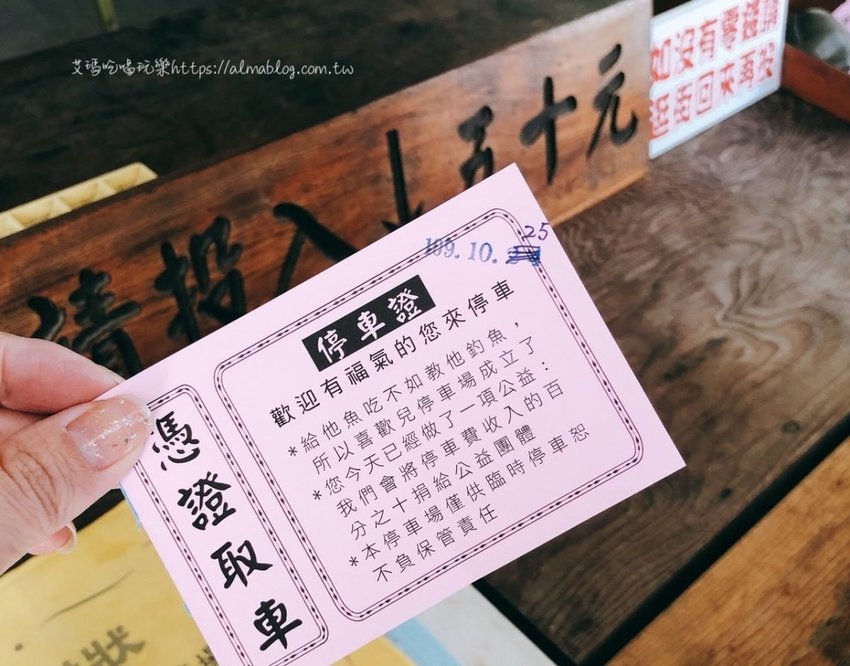 艾瑪吃喝玩樂https://almablog.com.tw
請投入 五十元
若沒有零錢
逛街回來再投
109.10.25
停車證
歡迎有福氣的您來停車
*給他魚吃不如教他釣魚，
所以喜歡兒停車場成立了
*您今天已經做了一項公益：
我們會將停車費收入的百
分之十捐給公益團體
*本停車場僅供臨時停車恕
不負保管責任
憑證取車
狀